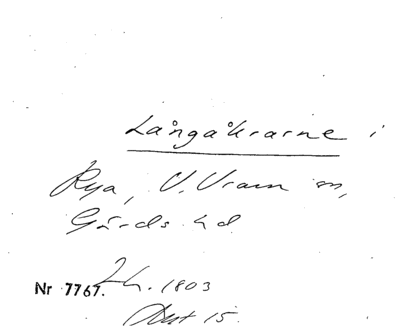 Långåkrarne i
Rya, V. Vram sn,
Gärds hd.
Nr 7767. Lh. 1803
Akt 15.